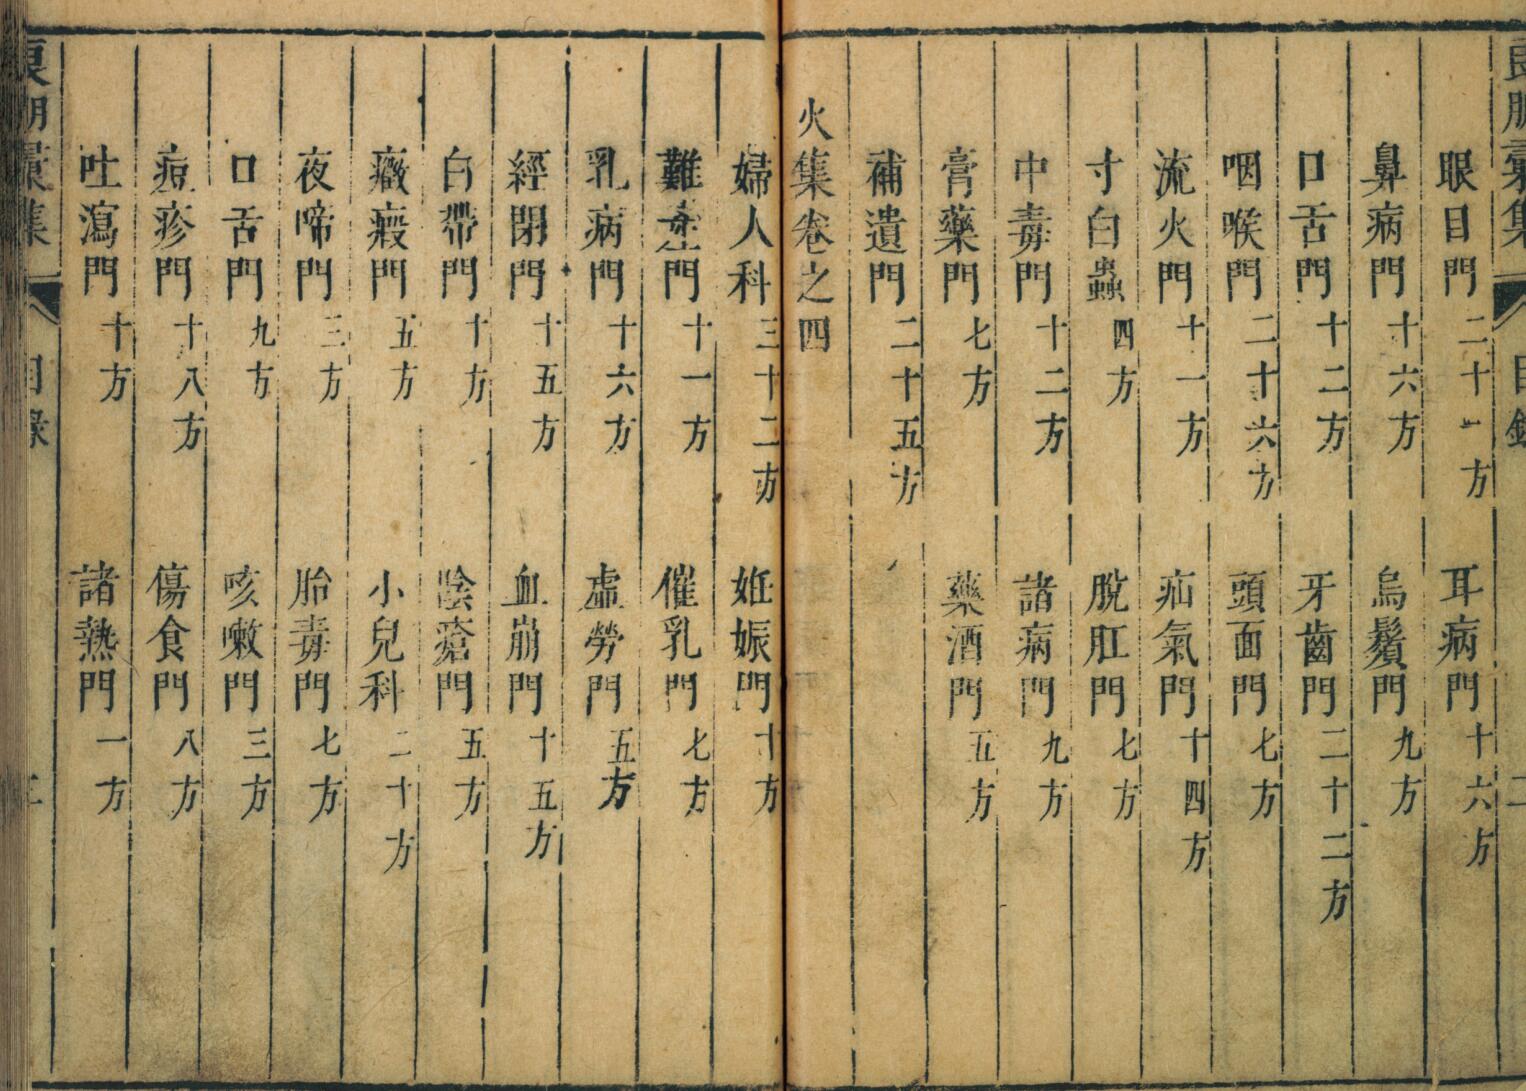 良朋彙集 目錄 二
眼目門 二十一方 耳病門 十六方
鼻病門 十六方 烏鬚門 九方
口舌門 十二方 牙齒門 二十二方
咽喉門 二十六方 頭面門 七方
流火門 十一方 疝氣門 十四方
寸白蟲 四方 脫肛門 七方
中毒門 十二方 諸病門 九方
膏藥門 七方 藥酒門 五方
補遺門 二十五方
火集卷之四
婦人科 三十二方 妊娠門 十方
難產門 十一方 催乳門 七方
乳病門 十六方 虛勞門 五方
經閉門 十五方 血崩門 十五方
白帶門 十方 陰瘡門 五方
癥瘕門 五方 小兒科 二十方
夜啼門 三方 胎毒門 七方
口舌門 九方 咳嗽門 三方
痘疹門 十八方 傷食門 八方
吐瀉門 十方 諸熱門 一方
良朋彙集 目錄